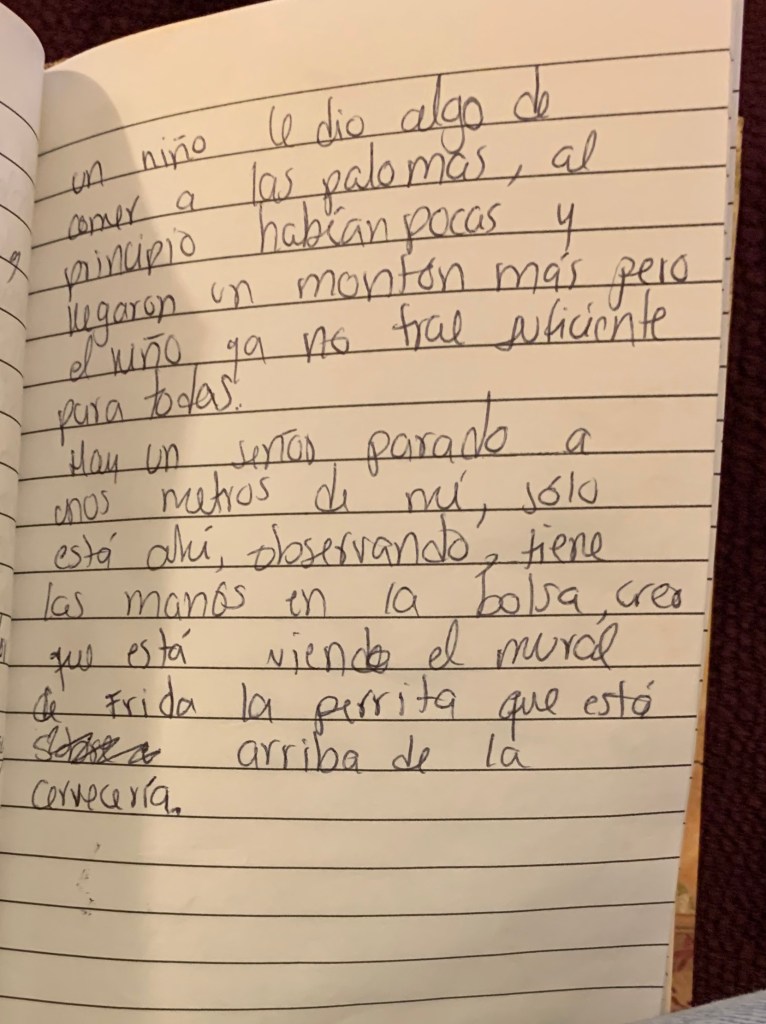 un niño le dio algo de
comer a las palomas, al
principio habían pocas y
llegaron un montón más pero
el niño ya no trae suficiente
para todas.
Hay un señor parado a
unos metros de mí, sólo
está ahí, observando, tiene
las manos en la bolsa, creo
que está viendo el mural
de Frida la perrita que está
arriba de la
cervecería.